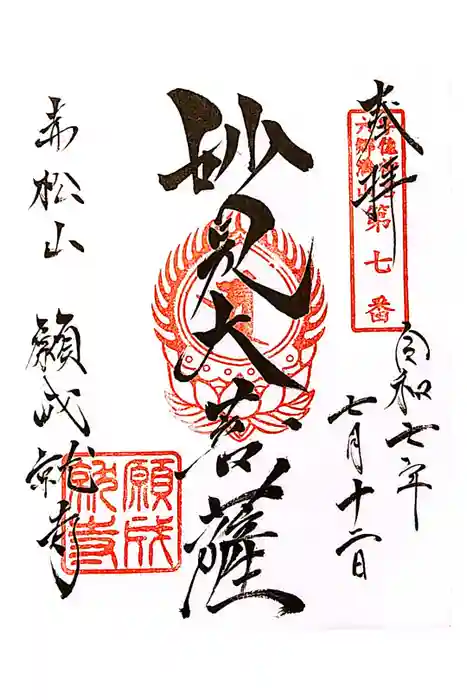 奉拝
宇佐
六郷満山
第七番
令和七年
七月十二日
妙見大菩薩
赤松山 願成就寺
願成
就寺